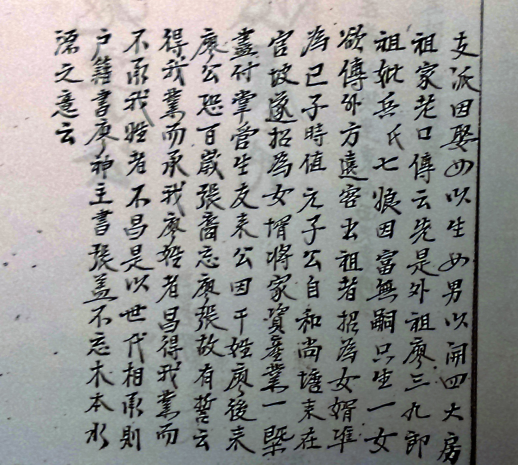 支派因娶以生男以開四大房
祖家老口傳云先是外祖廖三九郎
祖妣兵氏七娘因富無嗣只生一女
欲傳外方遠客出祖者招為女婿準
為已子時值元子公自和尚塘來在
官坡遂招為女壻將家資產業一槩
盡付掌管生友來公因干姓廖後來
廖公恐百歲張裔忘廖張故有誓云
得我業而承我廖姓者昌得我業而
不承我姓者不昌是以世代相承則
户籍書廖神主書張盖不忘木本水
源之意云